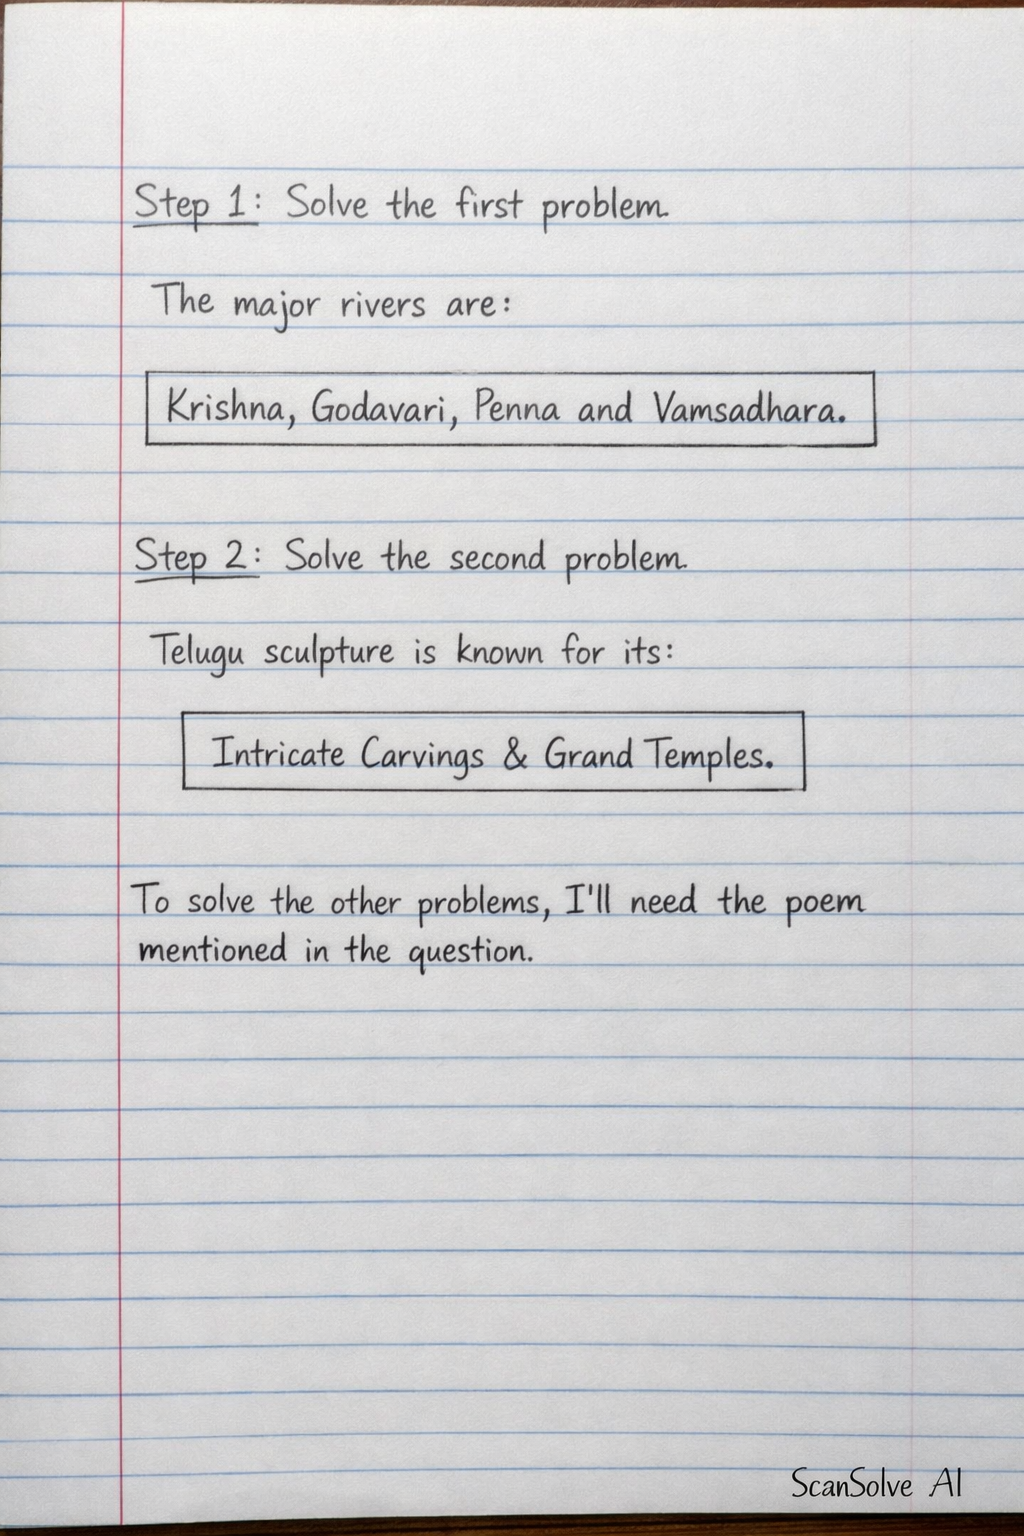 Step 1: Solve the first problem.
The major rivers are:
Krishna, Godavari, Penna and Vamsadhara.
Step 2: Solve the second problem.
Telugu sculpture is known for its:
Intricate Carvings & Grand Temples.
To solve the other problems, I'll need the poem
mentioned in the question.
ScanSolve AI